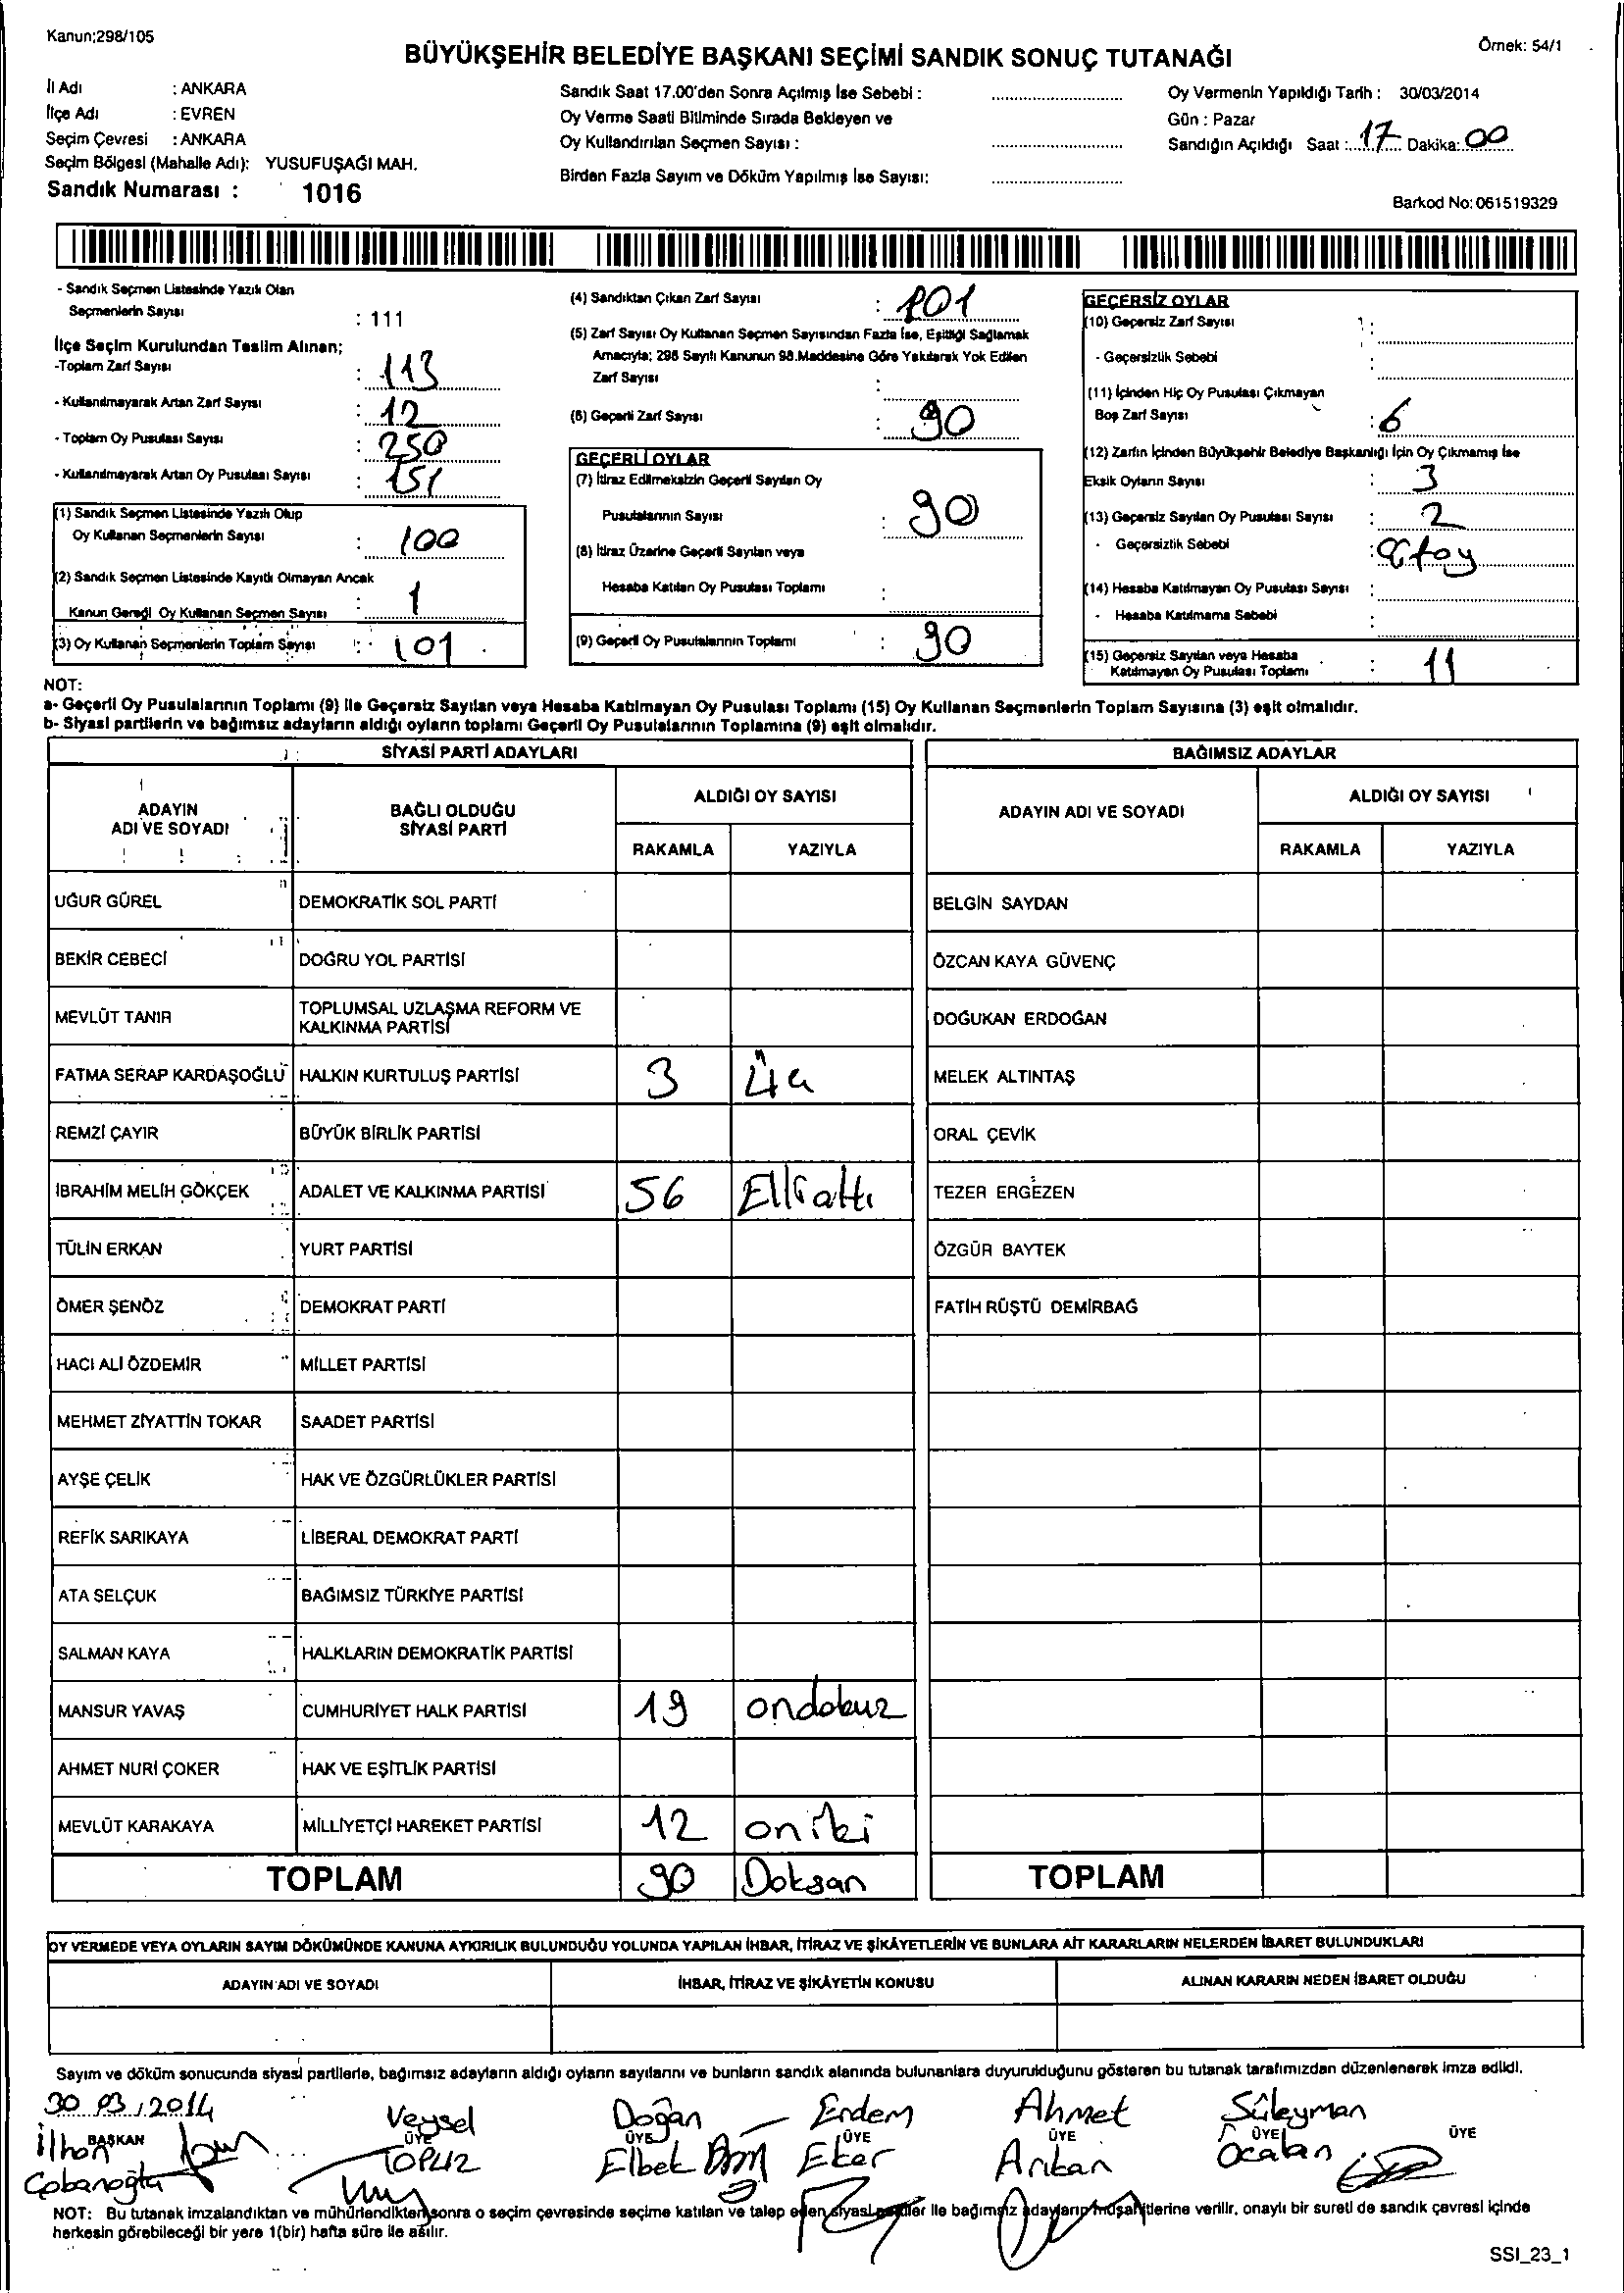 Kanun;298/105
Örnek: 54/1
BÜYÜKŞEHİR BELEDİYE BAŞKANI SEÇİMİ SANDIK SONUÇ TUTANAĞI
İl Adı : ANKARA
İlçe Adı : EVREN
Seçim Çevresi : ANKARA
Seçim Bölgesi (Mahalle Adı): YUSUFUŞAĞI MAH.
Sandık Numarası : 1016
Sandık Saat 17.00'den Sonra Açılmış İse Sebebi :
Oy Verme Saati Bitiminde Sırada Bekleyen ve
Oy Kullandırılan Seçmen Sayısı :
Birden Fazla Sayım ve Döküm Yapılmış İse Sayısı:
Oy Vermenin Yapıldığı Tarih : 30/03/2014
Gün : Pazar
Sandığın Açıldığı Saat : 17 Dakika: 00
Barkod No: 061519329
- Sandık Seçmen Listesinde Yazılı Olan
Seçmenlerin Sayısı : 111
İlçe Seçim Kurulundan Teslim Alınan;
-Toplam Zarf Sayısı : 113
- Kullanılmayarak Artan Zarf Sayısı : 12
- Toplam Oy Pusulası Sayısı : 250
- Kullanılmayarak Artan Oy Pusulası Sayısı : 151
(1) Sandık Seçmen Listesinde Yazılı Olup
Oy Kullanan Seçmenlerin Sayısı : 100
(2) Sandık Seçmen Listesinde Kayıtlı Olmayan Ancak
Kanun Gereği Oy Kullanan Seçmen Sayısı : 1
(3) Oy Kullanan Seçmenlerin Toplam Sayısı : 101
(4) Sandıktan Çıkan Zarf Sayısı : 101
(5) Zarf Sayısı Oy Kullanan Seçmen Sayısından Fazla İse, Eşitliği Sağlamak
Amacıyla; 298 Sayılı Kanunun 98.Maddesine Göre Yakılarak Yok Edilen
Zarf Sayısı :
(6) Geçerli Zarf Sayısı : 90
GEÇERLİ OYLAR
(7) İtiraz Edilmeksizin Geçerli Sayılan Oy
Pusulalarının Sayısı : 90
(8) İtiraz Üzerine Geçerli Sayılan veya
Hesaba Katılan Oy Pusulası Toplamı :
(9) Geçerli Oy Pusulalarının Toplamı : 90
GEÇERSİZ OYLAR
(10) Geçersiz Zarf Sayısı :
- Geçersizlik Sebebi :
(11) İçinden Hiç Oy Pusulası Çıkmayan
Boş Zarf Sayısı : 6
(12) Zarfın İçinden Büyükşehir Belediye Başkanlığı İçin Oy Çıkmamış İse
Eksik Oyların Sayısı : 3
(13) Geçersiz Sayılan Oy Pusulası Sayısı : 2
- Geçersizlik Sebebi : Çift oy
(14) Hesaba Katılmayan Oy Pusulası Sayısı :
- Hesaba Katılmama Sebebi :
(15) Geçersiz Sayılan veya Hesaba
Katılmayan Oy Pusulası Toplamı : 11
NOT:
a- Geçerli Oy Pusulalarının Toplamı (9) ile Geçersiz Sayılan veya Hesaba Katılmayan Oy Pusulası Toplamı (15) Oy Kullanan Seçmenlerin Toplam Sayısına (3) eşit olmalıdır.
b- Siyasi partilerin ve bağımsız adayların aldığı oyların toplamı Geçerli Oy Pusulalarının Toplamına (9) eşit olmalıdır.
SİYASİ PARTİ ADAYLARI
ADAYIN ADI VE SOYADI
BAĞLI OLDUĞU SİYASİ PARTİ
ALDIĞI OY SAYISI
RAKAMLA YAZIYLA
UĞUR GÜREL DEMOKRATİK SOL PARTİ
BEKİR CEBECİ DOĞRU YOL PARTİSİ
MEVLÜT TANIR TOPLUMSAL UZLAŞMA REFORM VE
KALKINMA PARTİSİ
FATMA SERAP KARDAŞOĞLU HALKIN KURTULUŞ PARTİSİ 3 Üç
REMZİ ÇAYIR BÜYÜK BİRLİK PARTİSİ
İBRAHİM MELİH GÖKÇEK ADALET VE KALKINMA PARTİSİ 56 Elli altı
TÜLİN ERKAN YURT PARTİSİ
ÖMER ŞENÖZ DEMOKRAT PARTİ
HACI ALİ ÖZDEMİR MİLLET PARTİSİ
MEHMET ZİYATTİN TOKAR SAADET PARTİSİ
AYŞE ÇELİK HAK VE ÖZGÜRLÜKLER PARTİSİ
REFİK SARIKAYA LİBERAL DEMOKRAT PARTİ
ATA SELÇUK BAĞIMSIZ TÜRKİYE PARTİSİ
SALMAN KAYA HALKLARIN DEMOKRATİK PARTİSİ
MANSUR YAVAŞ CUMHURİYET HALK PARTİSİ 19 ondokuz
AHMET NURİ ÇOKER HAK VE EŞİTLİK PARTİSİ
MEVLÜT KARAKAYA MİLLİYETÇİ HAREKET PARTİSİ 12 oniki
TOPLAM 90 Doksan
BAĞIMSIZ ADAYLAR
ADAYIN ADI VE SOYADI
ALDIĞI OY SAYISI
RAKAMLA YAZIYLA
BELGİN SAYDAN
ÖZCAN KAYA GÜVENÇ
DOĞUKAN ERDOĞAN
MELEK ALTINTAŞ
ORAL ÇEVİK
TEZER ERGEZEN
ÖZGÜR BAYTEK
FATİH RÜŞTÜ DEMİRBAĞ
TOPLAM
OY VERMEDE VEYA OYLARIN SAYIM DÖKÜMÜNDE KANUNA AYKIRILIK BULUNDUĞU YOLUNDA YAPILAN İHBAR, İTİRAZ VE ŞİKÂYETLERİN VE BUNLARA AİT KARARLARIN NELERDEN İBARET BULUNDUKLARI
ADAYIN ADI VE SOYADI İHBAR, İTİRAZ VE ŞİKÂYETİN KONUSU ALINAN KARARIN NEDEN İBARET OLDUĞU
Sayım ve döküm sonucunda siyasi partilerle, bağımsız adayların aldığı oyların sayılarını ve bunların sandık alanında bulunanlara duyurulduğunu gösteren bu tutanak tarafımızdan düzenlenerek imza edildi.
30.03.2014
Veysel Doğan Erdem Ahmet Süleyman
BAŞKAN ÜYE ÜYE ÜYE ÜYE ÜYE ÜYE
İlhan Çobanoğlu TOPUZ Elbek Eker Arıkan Öcalan
NOT: Bu tutanak imzalandıktan ve mühürlendikten sonra o seçim çevresinde seçime katılan ve talep eden siyasi partiler ile bağımsız adayların müşahitlerine verilir, onaylı bir sureti de sandık çevresi içinde
herkesin görebileceği bir yere 1(bir) hafta süre ile asılır.
SSI_23_1